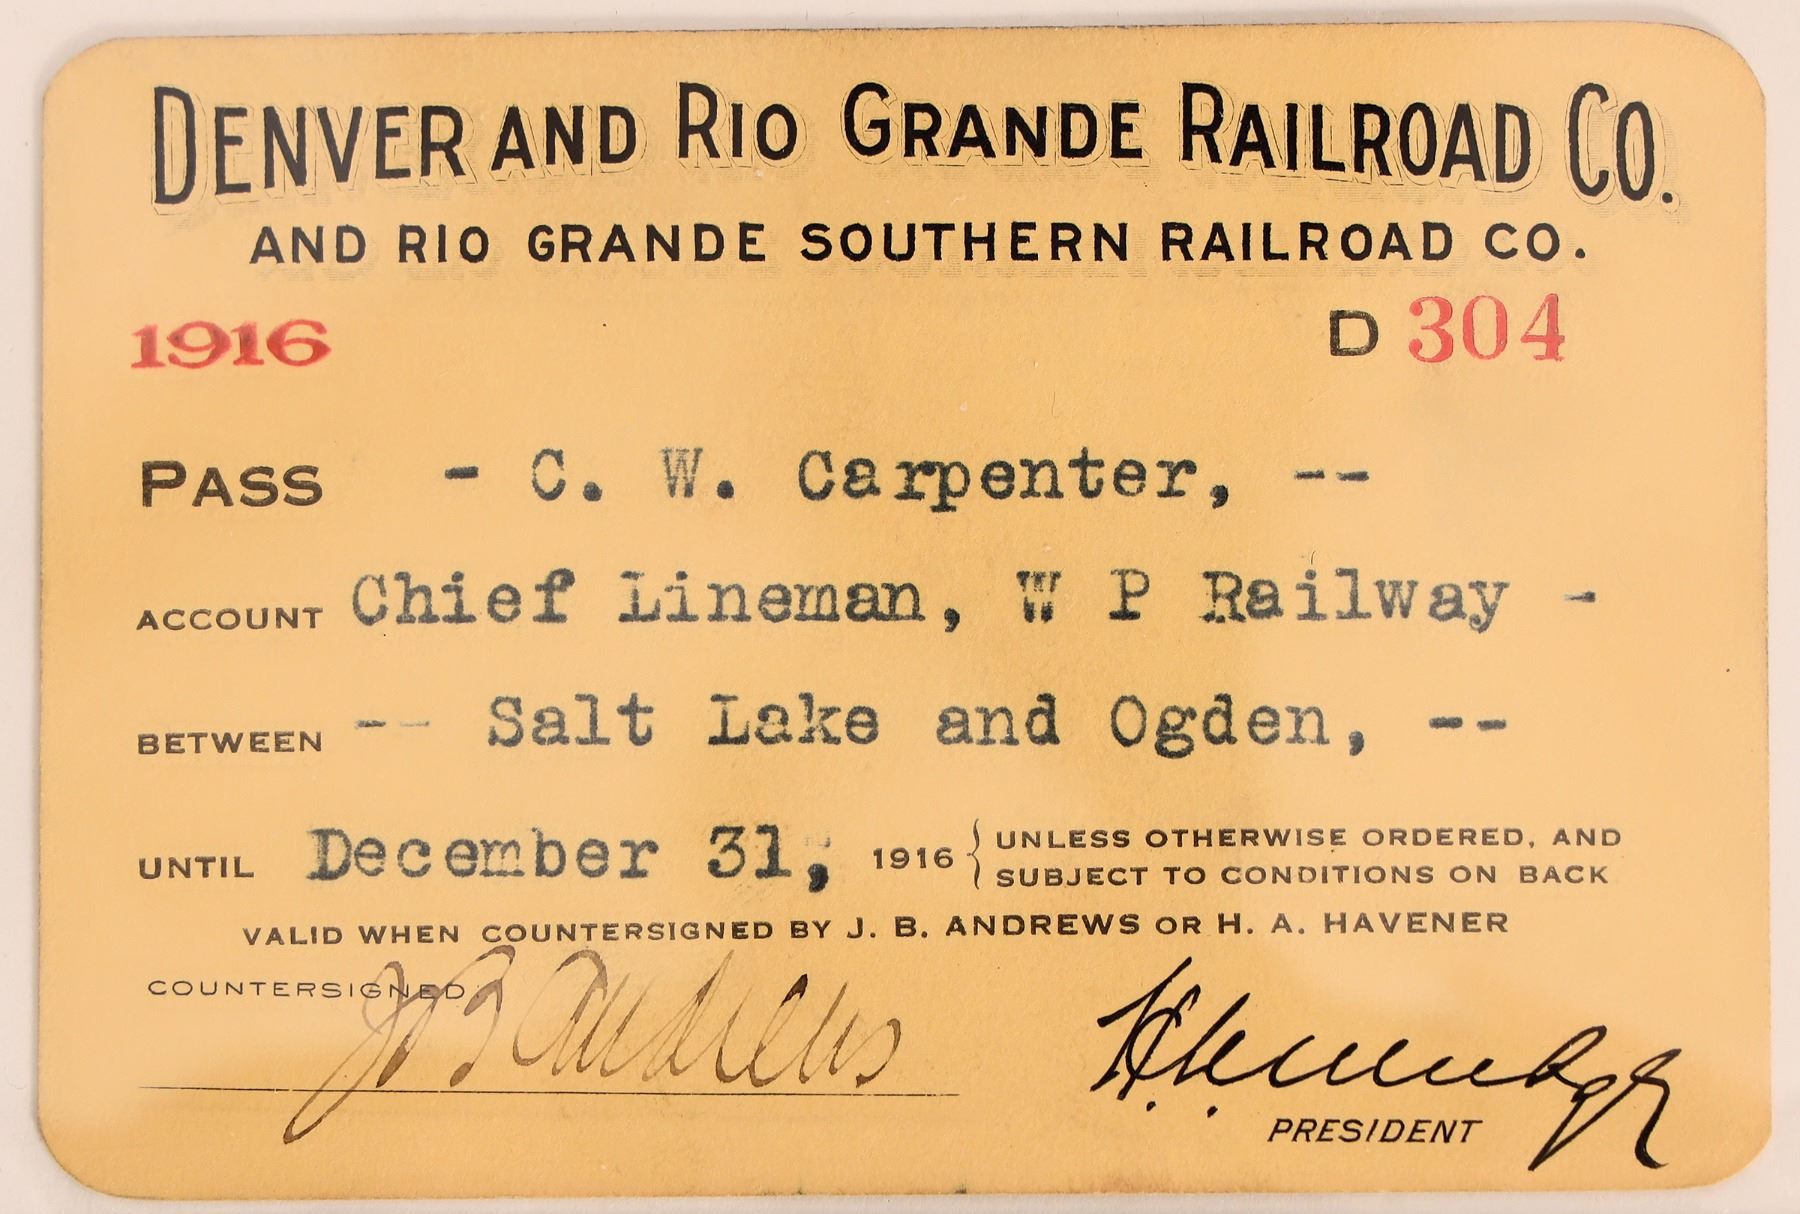 DENVER AND RIO GRANDE RAILROAD CO.
AND RIO GRANDE SOUTHERN RAILROAD CO.
1916 D 304
PASS - C. W. Carpenter, --
ACCOUNT Chief Lineman, W P Railway -
BETWEEN -- Salt Lake and Ogden, --
UNTIL December 31, 1916 { UNLESS OTHERWISE ORDERED, AND
SUBJECT TO CONDITIONS ON BACK
VALID WHEN COUNTERSIGNED BY J. B. ANDREWS OR H. A. HAVENER
COUNTERSIGNED
J B Andrews
PRESIDENT